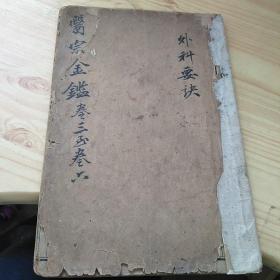 醫宗金鑑卷三至卷六
外科要訣